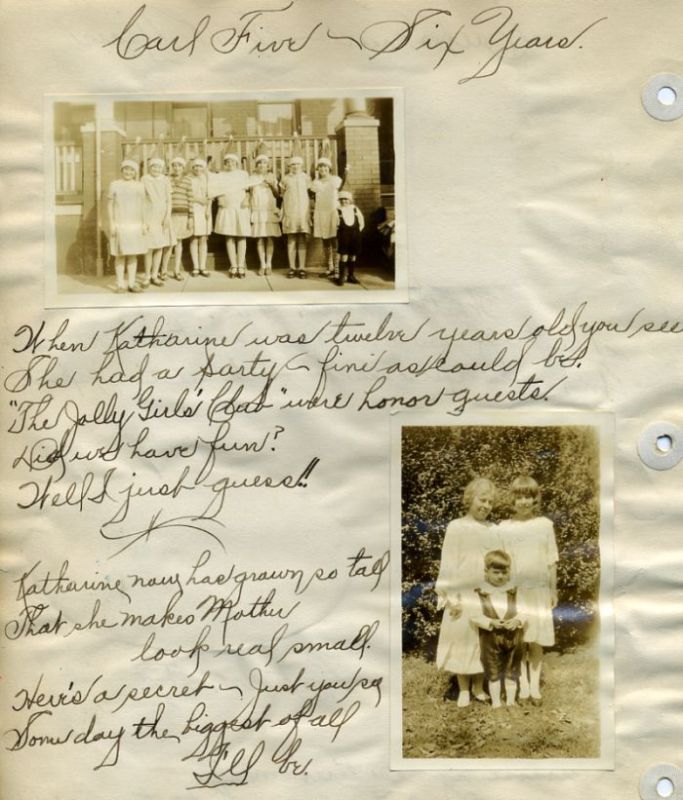 Carl Five - Six Years.
When Katharine was twelve years old you see
She had a party - fine as could be.
"The Jolly Girls' Club" were honor guests.
Did we have fun?
Well I just guess!!
Katharine now has grown so tall
That she makes Mother
look real small.
Here's a secret - Just you
Some day the biggest of all
I'll be.